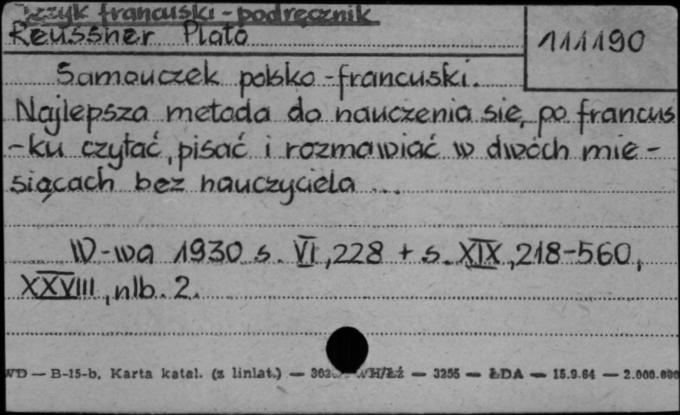 Język francuski - podręcznik
Reussner Plato
111190
Samouczek polsko-francuski.
Najlepsza metoda do nauczenia się po francus
-ku czytać, pisać i rozmawiać w dwóch mie-
siącach bez nauczyciela ...
W-wa 1930 s. VI, 228 + s. XIX, 218-560,
XXVIII, nlb. 2.
WD — B-15-b, Karta katal. (z liniat.) — WH/Łź — 3256 — ŁDA — 15.9.64 — 2.000.000